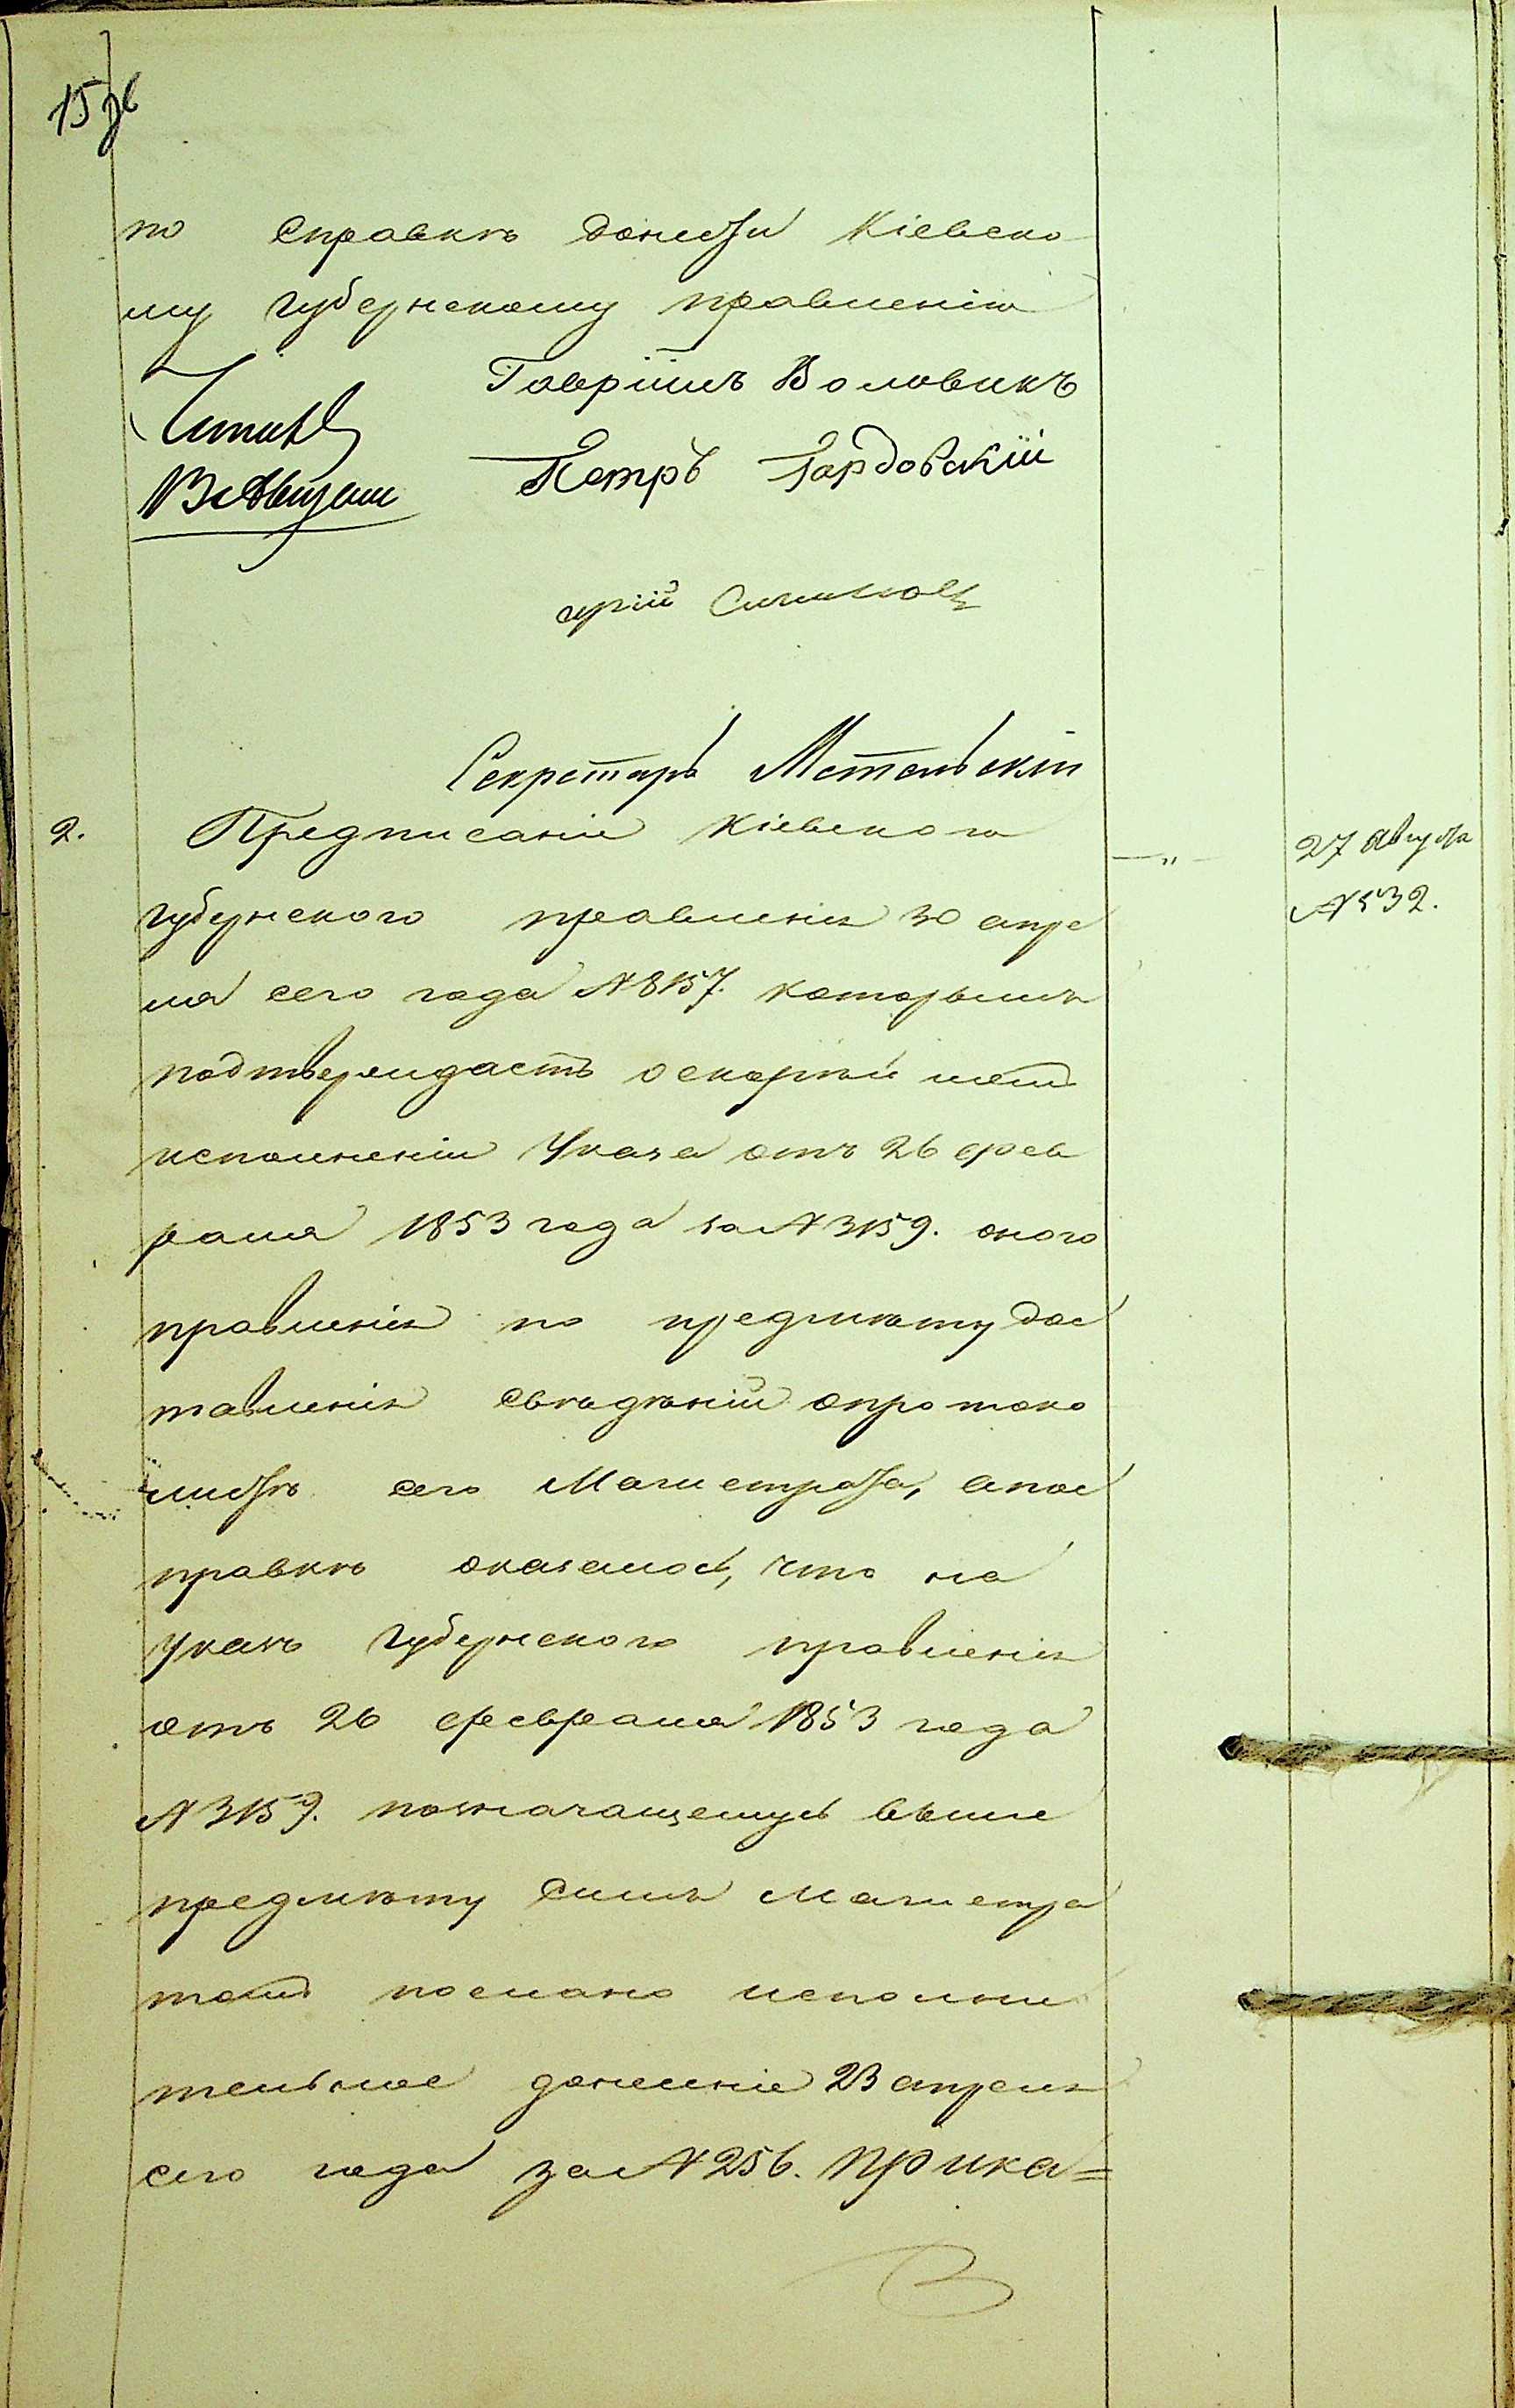 15 об
по справкѣ донести Кіевско
му Губернскому правленію
Гавріилъ Воловикъ
Петръ Гордовскій
Секретарь Метельскій
2. Предписаніе Кіевскаго
Губернскаго правленія 30 апре
ля сего года № 8157. которымъ
подтверждаетъ о скорѣйшемъ
исполненіи Указа отъ 26 фев
раля 1853 года за № 3159. оного
правленія по предмѣту дос
тавленія свѣдѣній о прото ко
листѣ сего Магистрата, а по с
правкѣ оказалось, что на
указъ Губернскаго правленія
отъ 26 февраля 1853 года
№ 3159. по значащемусь выше
предмѣту симъ Магистра
томъ послано исполни
тельное донесеніе 23 апреля
сего года за № 256. Прика=
27 Августа
№ 532.